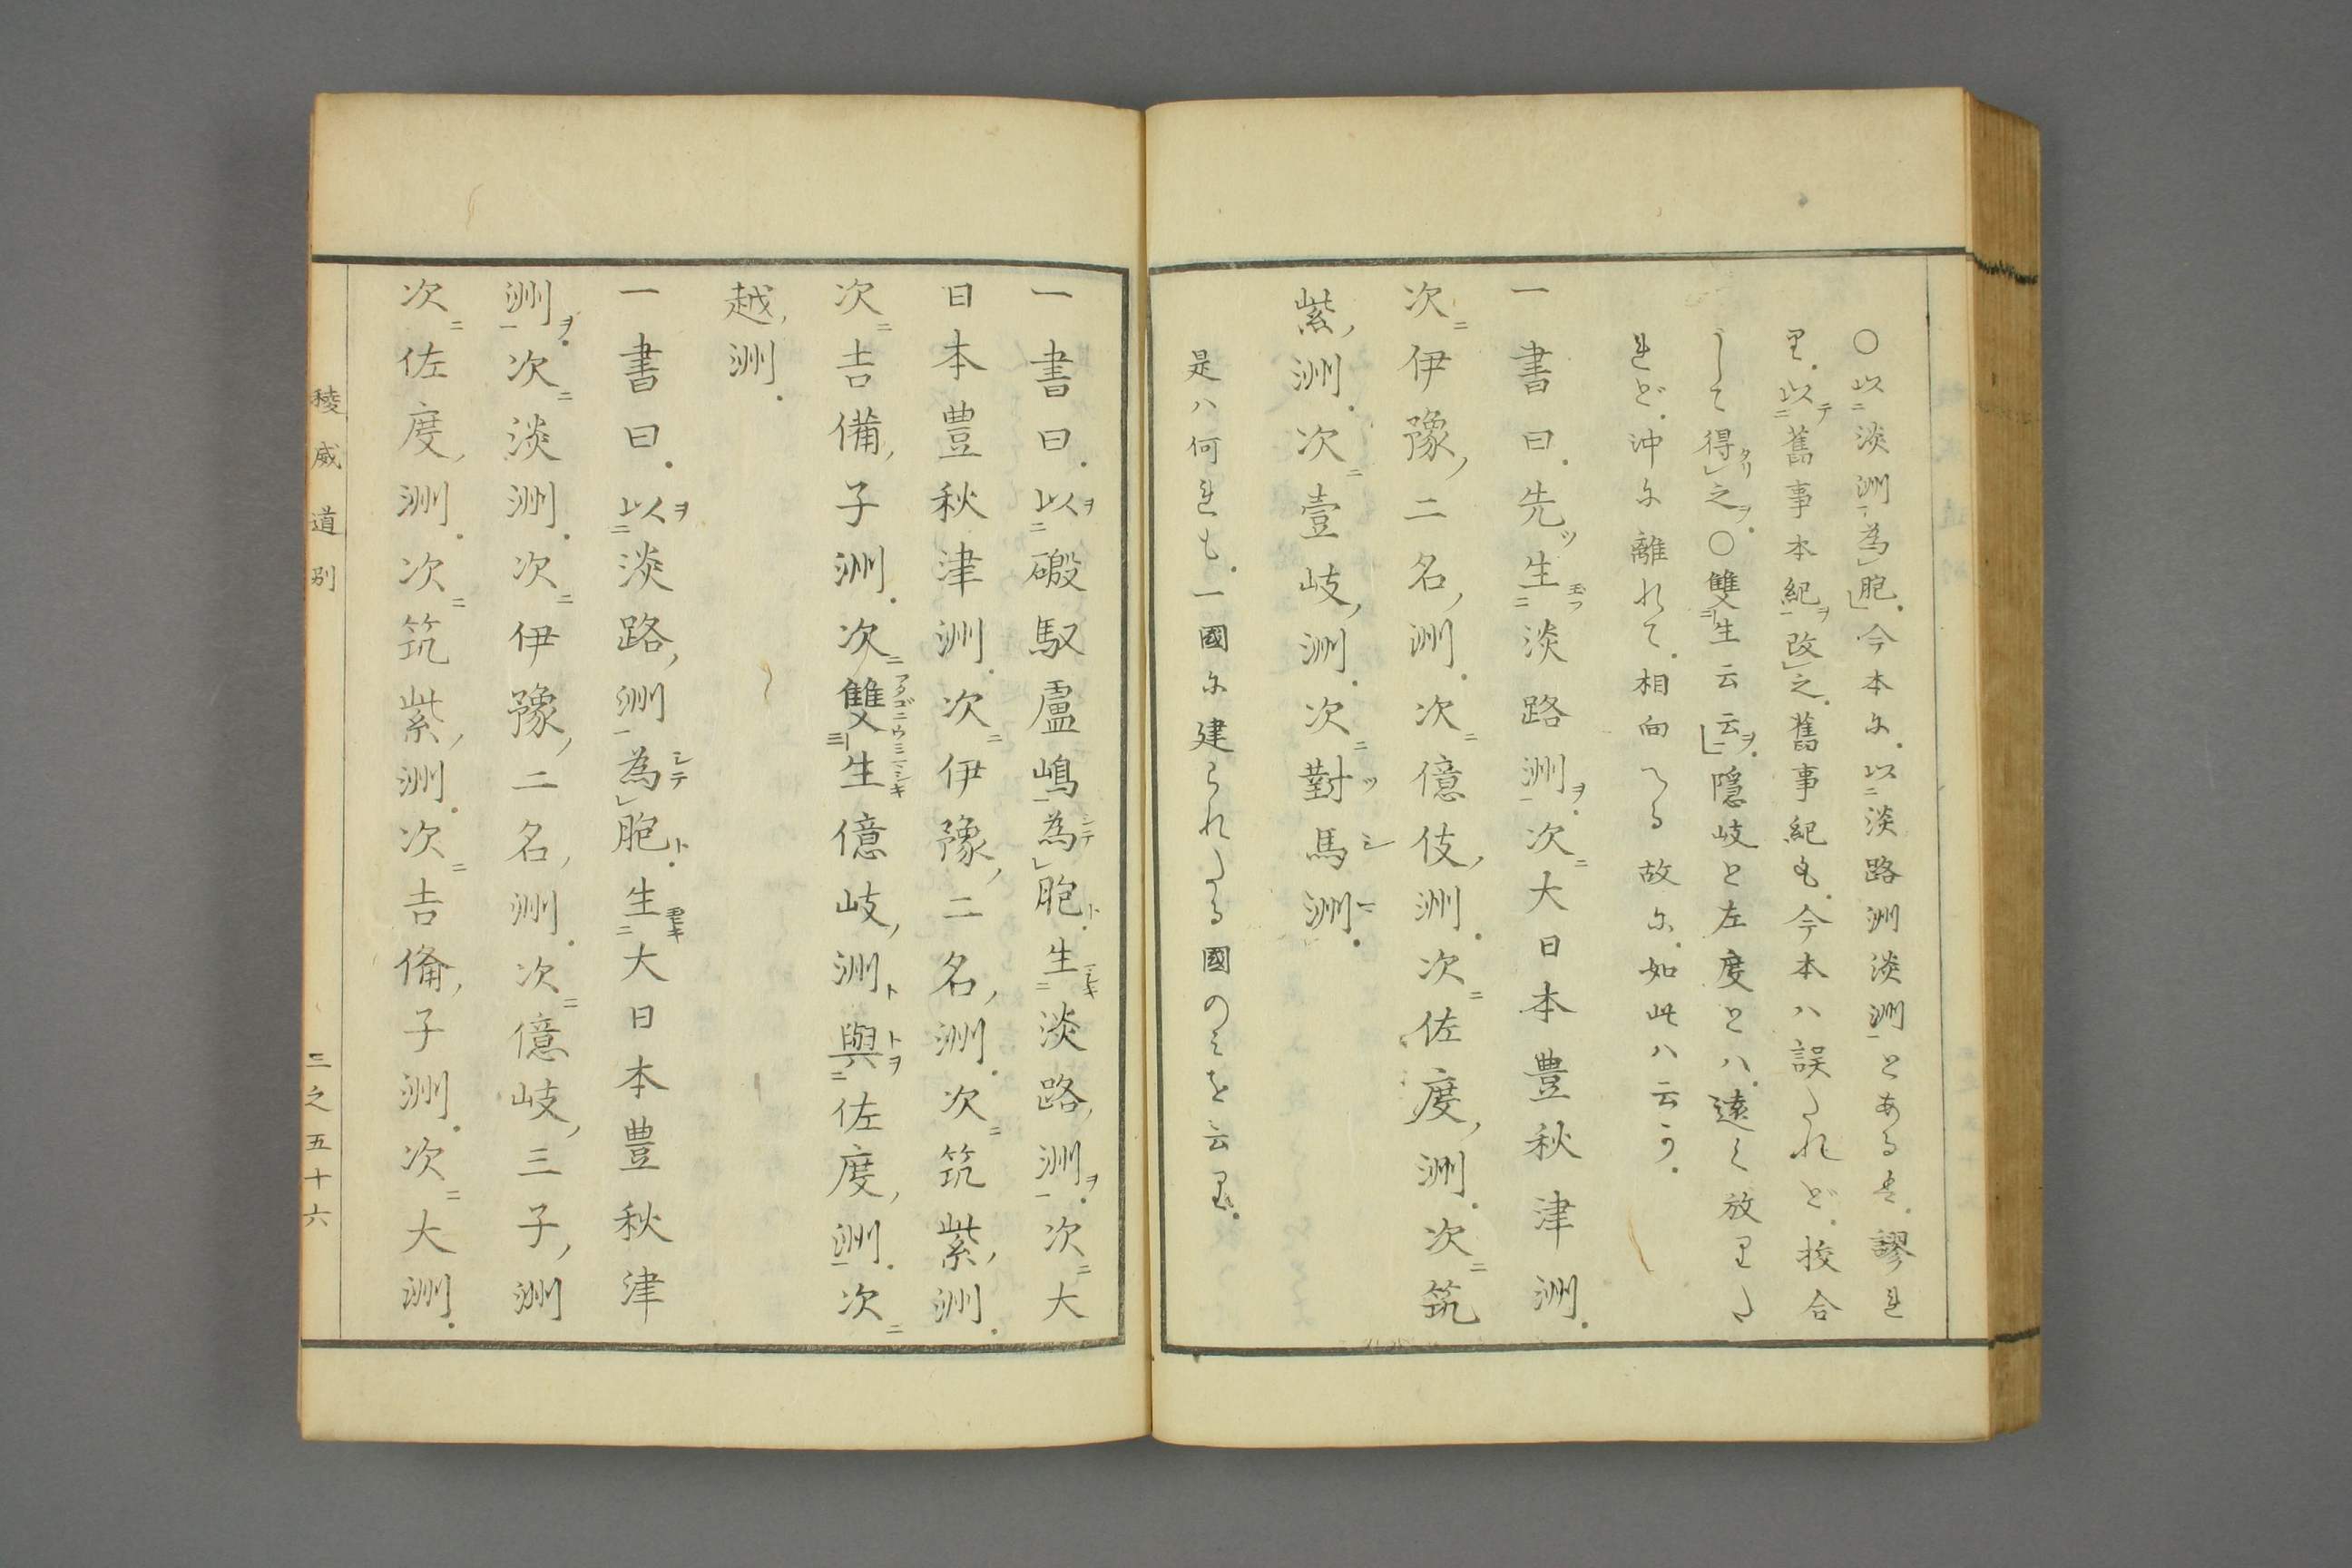 ○以淡洲為胞。今本尓。以淡路洲淡洲とあるは。謬れ
り。以舊事本紀改之。舊事紀も。今本ハ誤たれど。挍合
して得之。○雙生云云。隱岐と左度とハ。遠く放りた
れど。沖尓離れて。相向へる故尓。如此ハ云う。
一書曰。先生淡路洲。次大日本豊秋津洲。
次伊豫二名洲。次億伎洲。次佐度洲。次筑
紫洲。次壹岐洲。次對馬洲。
是ハ何れも。一國尓建られたる國のミを云り。
一書曰。以磤馭盧嶋為胞。生淡路洲。次大
日本豊秋津洲。次伊豫二名洲。次筑紫洲。
次吉備子洲。次雙生億岐洲與佐度洲。次
越洲。
一書曰。以淡路洲為胞。生大日本豊秋津
洲。次淡洲。次伊豫二名洲。次億岐三子洲
次佐度洲。次筑紫洲。次吉備子洲。次大洲。
稜威道別
三之五十六